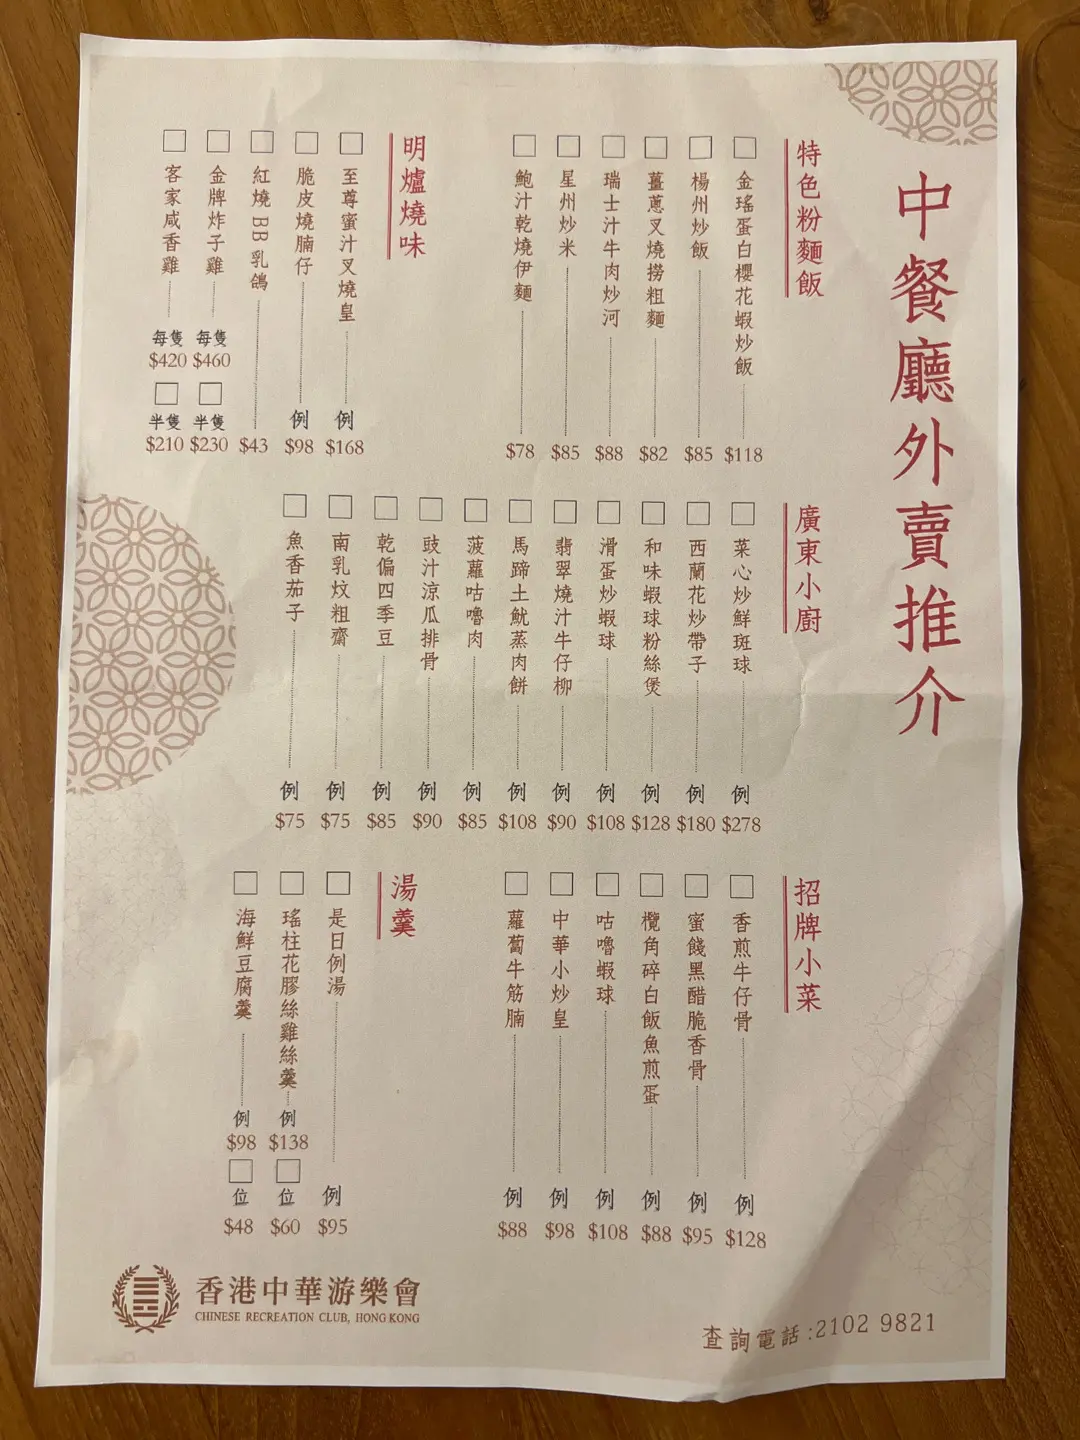 中餐廳外賣推介
特色粉麵飯
金瑤蛋白櫻花蝦炒飯 $118
楊州炒飯 $85
薑蔥叉燒撈粗麵 $82
瑞士汁牛肉炒河 $88
星州炒米 $85
鮑汁乾燒伊麵 $78
明爐燒味
至尊蜜汁叉燒皇 例 $168
脆皮燒腩仔 例 $98
紅燒BB乳鴿 $43
金牌炸子雞 每隻 $460 半隻 $230
客家咸香雞 每隻 $420 半隻 $210
廣東小廚
菜心炒鮮斑球 例 $278
西蘭花炒帶子 例 $180
和味蝦球粉絲煲 例 $128
滑蛋炒蝦球 例 $108
翡翠燒汁牛仔柳 例 $90
馬蹄土魷蒸肉餅 例 $108
菠蘿咕嚕肉 例 $85
豉汁涼瓜排骨 例 $90
乾煸四季豆 例 $85
南乳炆粗齋 例 $75
魚香茄子 例 $75
招牌小菜
香煎牛仔骨 例 $128
蜜餞黑醋脆香骨 例 $95
欖角碎白飯魚煎蛋 例 $88
咕嚕蝦球 例 $108
中華小炒皇 例 $98
蘿蔔牛筋腩 例 $88
湯羹
是日例湯 例 $95
瑤柱花膠絲雞絲羹 例 $138 位 $60
海鮮豆腐羹 例 $98 位 $48
香港中華游樂會
CHINESE RECREATION CLUB, HONG KONG
查詢電話:2102 9821